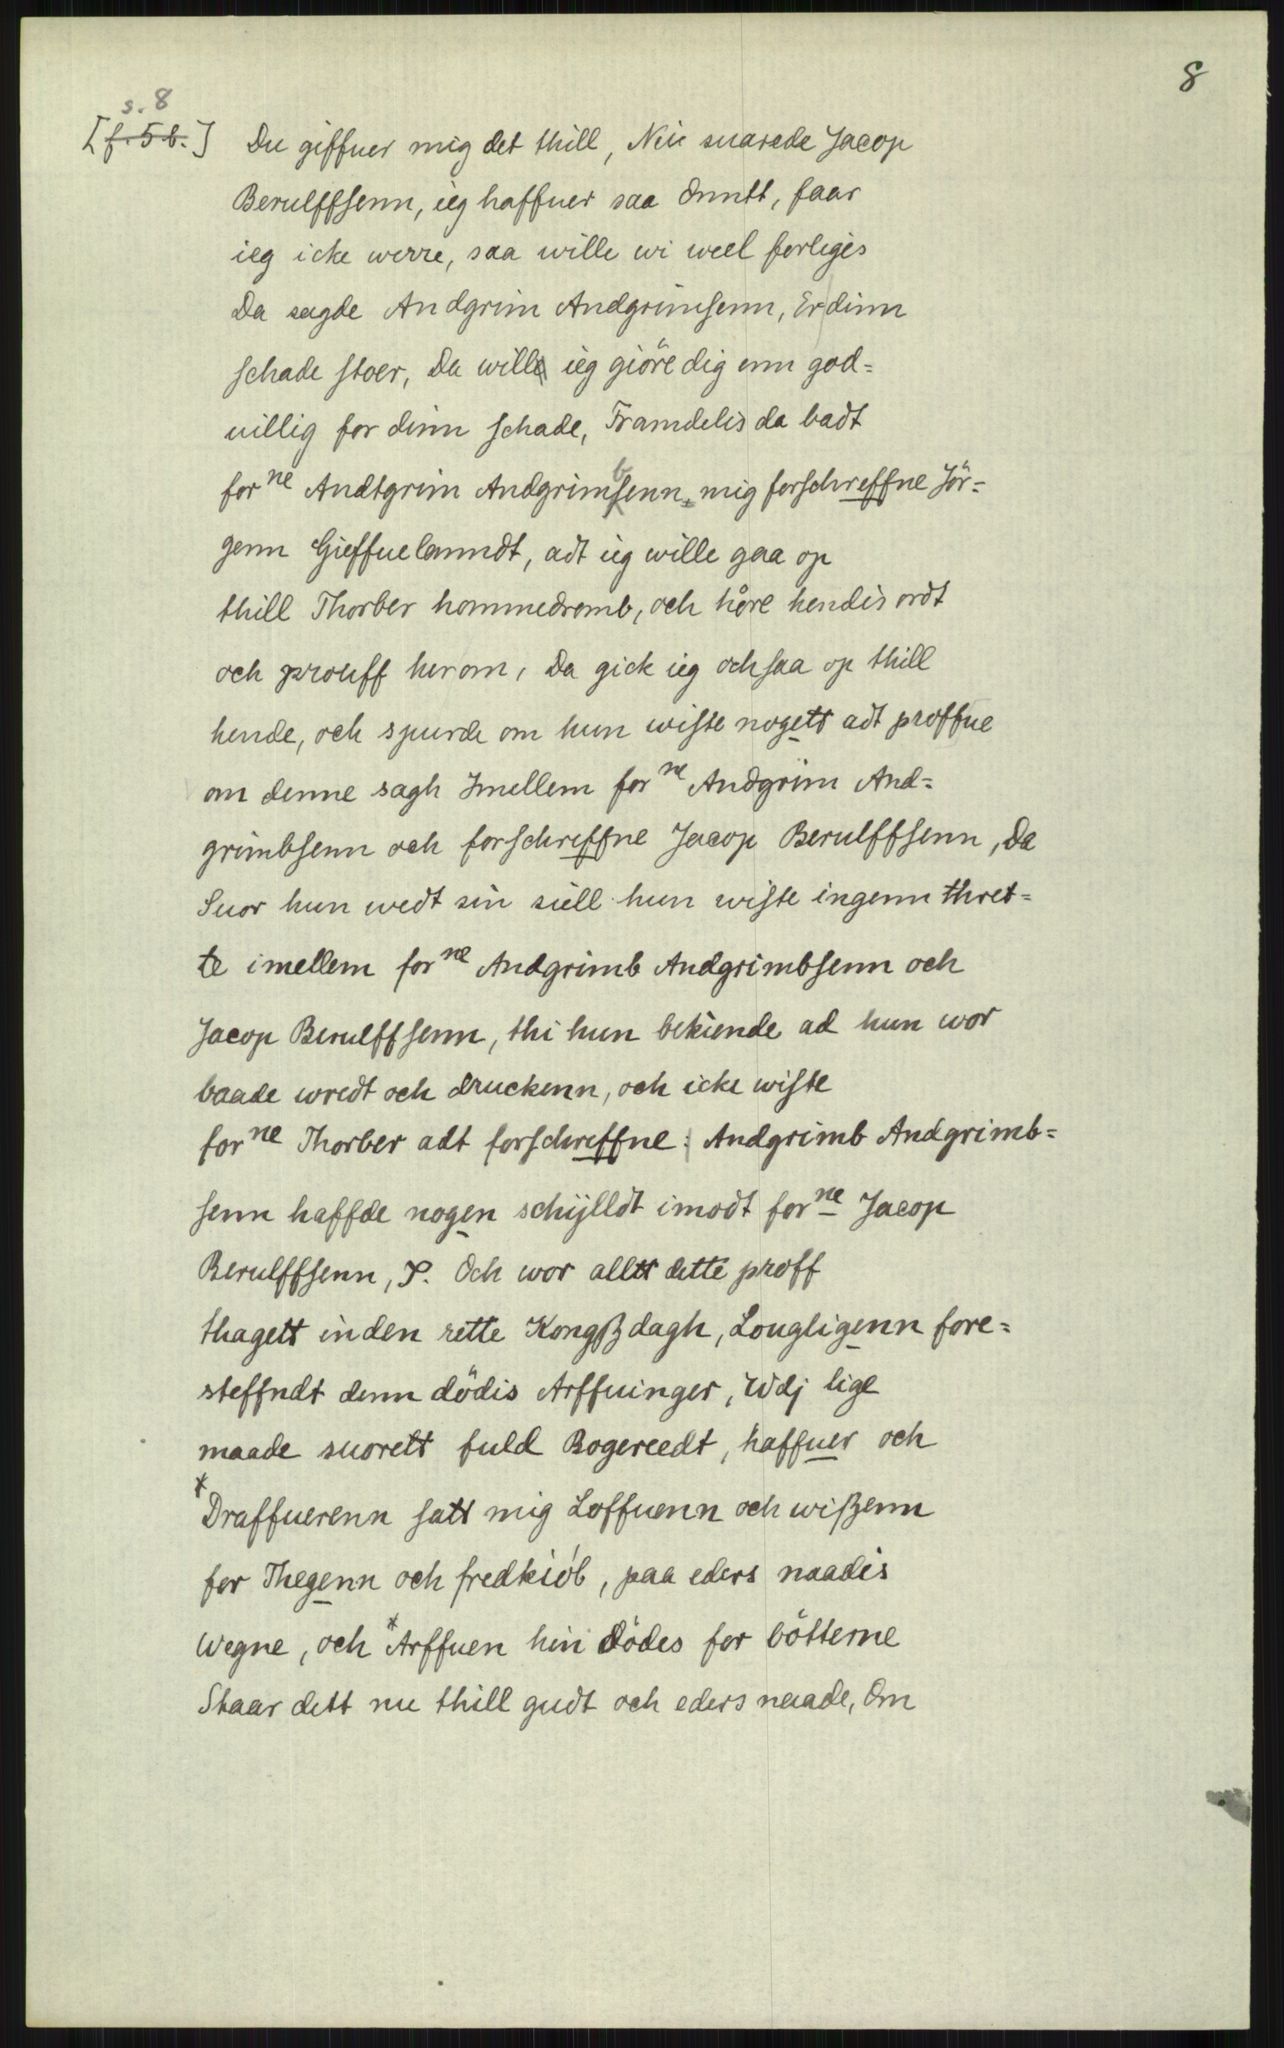 8
s. 8
[f. 5 b.] Du giffuer mig det thill, Nei suarede Jacop
Berulffsenn, ieg haffuer saa ónntt, faar
ieg icke werre, saa wille wi weel forliges
Da sagde Andgrim Andgrimsenn, Er dinn
schade stoer, Da will ieg giöre dig enn god=
uillig for dinn schade, Framdelis da badt
forne Andtgrim Andgrimbsenn mig forschreffne Jör=
genn Gieffuelanndt, adt ieg wille gaa op
thill Thorber hommedromb, och höre hendis ordt
och prouff herom, Da gick ieg ochsaa op thill
hende, och spurde om hun wiste nogett adt proffue
om denne sagh Imellem forne Andgrim And=
grimbsenn och forschreffne Jacop Berulffsenn, Da
Suor hun wedt sin siell hun wiste ingenn thret=
te imellem forne Andgrimb Andgrimbsenn och
Jacop Berulffsenn, thi hun bekiende ad hun wor
baade wredt och druckenn, och icke wiste
forne Thorber adt forschreffne Andgrimb Andgrimb=
senn haffde nogen schijlldt imodt forne Jacop
Berulffsenn, P. Och wor alltt dette proff
thagett inden rette Kongß dagh, Lougligenn fore=
steffndt denn dödis Arffuinger, Wdj lige
maade suorett fuld Bogereedt, haffuer och
*Draffuerenn satt mig Loffuenn och wißenn
for Thegenn och fredkiöb, paa eders naadis
Wegne, och *Arffuen hin dödes for bötterne
Staar dett nu thill gudt och eders naade, Om